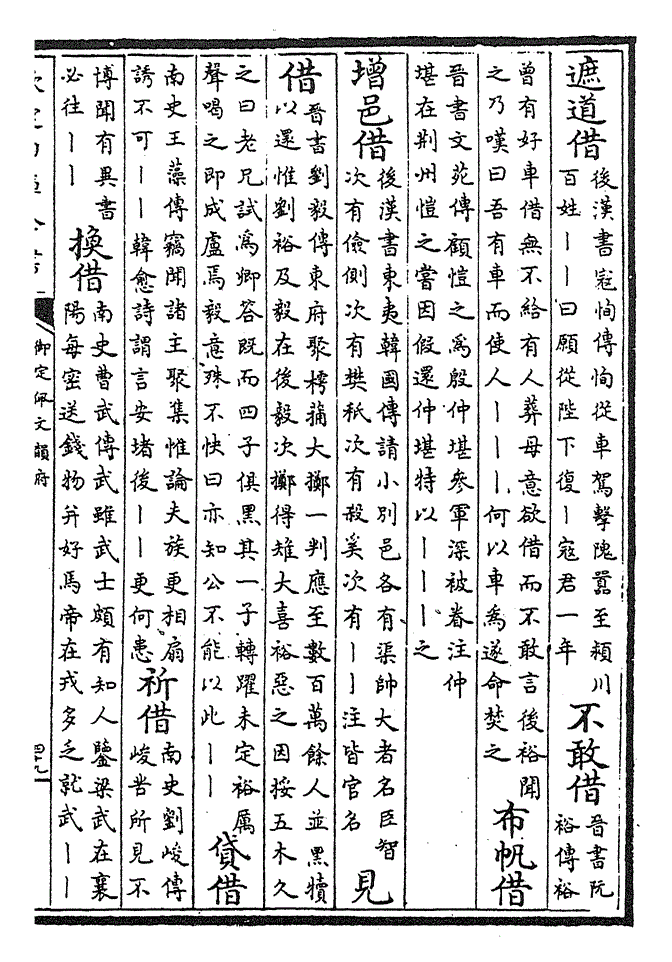 遮道借
後漢書寇恂傳恂從車駕擊隗囂至潁川
百姓丨丨曰願從陛下復丨寇君一年
不敢借
晉書阮
裕傳裕
曾有好車借無不給有人葬母意欲借而不敢言後裕聞
之乃嘆曰吾有車而使人丨丨丨何以車為遂命焚之
布帆借
晉書文苑傳顧愷之為殷仲堪參軍深被眷注仲
堪在荆州愷之嘗因假還仲堪特以丨丨丨之
增邑借
後漢書東夷韓國傳請小別邑各有渠帥大者名臣智
次有儉側次有樊秖次有殺奚次有丨丨注皆官名
見
借
晉書劉毅傳東府聚樗蒱大擲一判應至數百萬餘人並黑犢
以還惟劉裕及毅在後毅次擲得雉大喜裕惡之因挼五木久
之曰老兄試為卿答既而四子俱黑其一子轉躍未定裕厲
聲喝之即成盧焉毅意殊不快曰亦知公不能以此丨丨
貸借
南史王藻傳竊聞諸主聚集惟論夫族更相扇
誘不可丨丨韓愈詩謂言安堵後丨丨更何患
祈借
南史劉峻傳
峻苦所見不
博聞有異書
必往丨丨
換借
南史曹武傳武雖武士頗有知人鑒梁武在襄
陽每密送錢物并好馬帝在戎多乏就武丨丨
御定佩文韻府
四十九